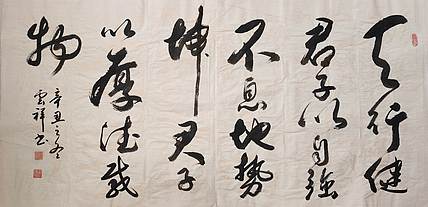 天行健
君子以自強
不息地勢
坤君子
以厚德載
物
辛丑之冬
雲祥書